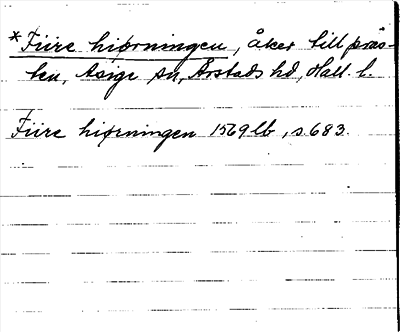 *Fiire hiørningen, åker till präs-
ten, Asige sn, Årstads hd, Hall. l.
Fiire hiørningen 1569 lb, s 683.